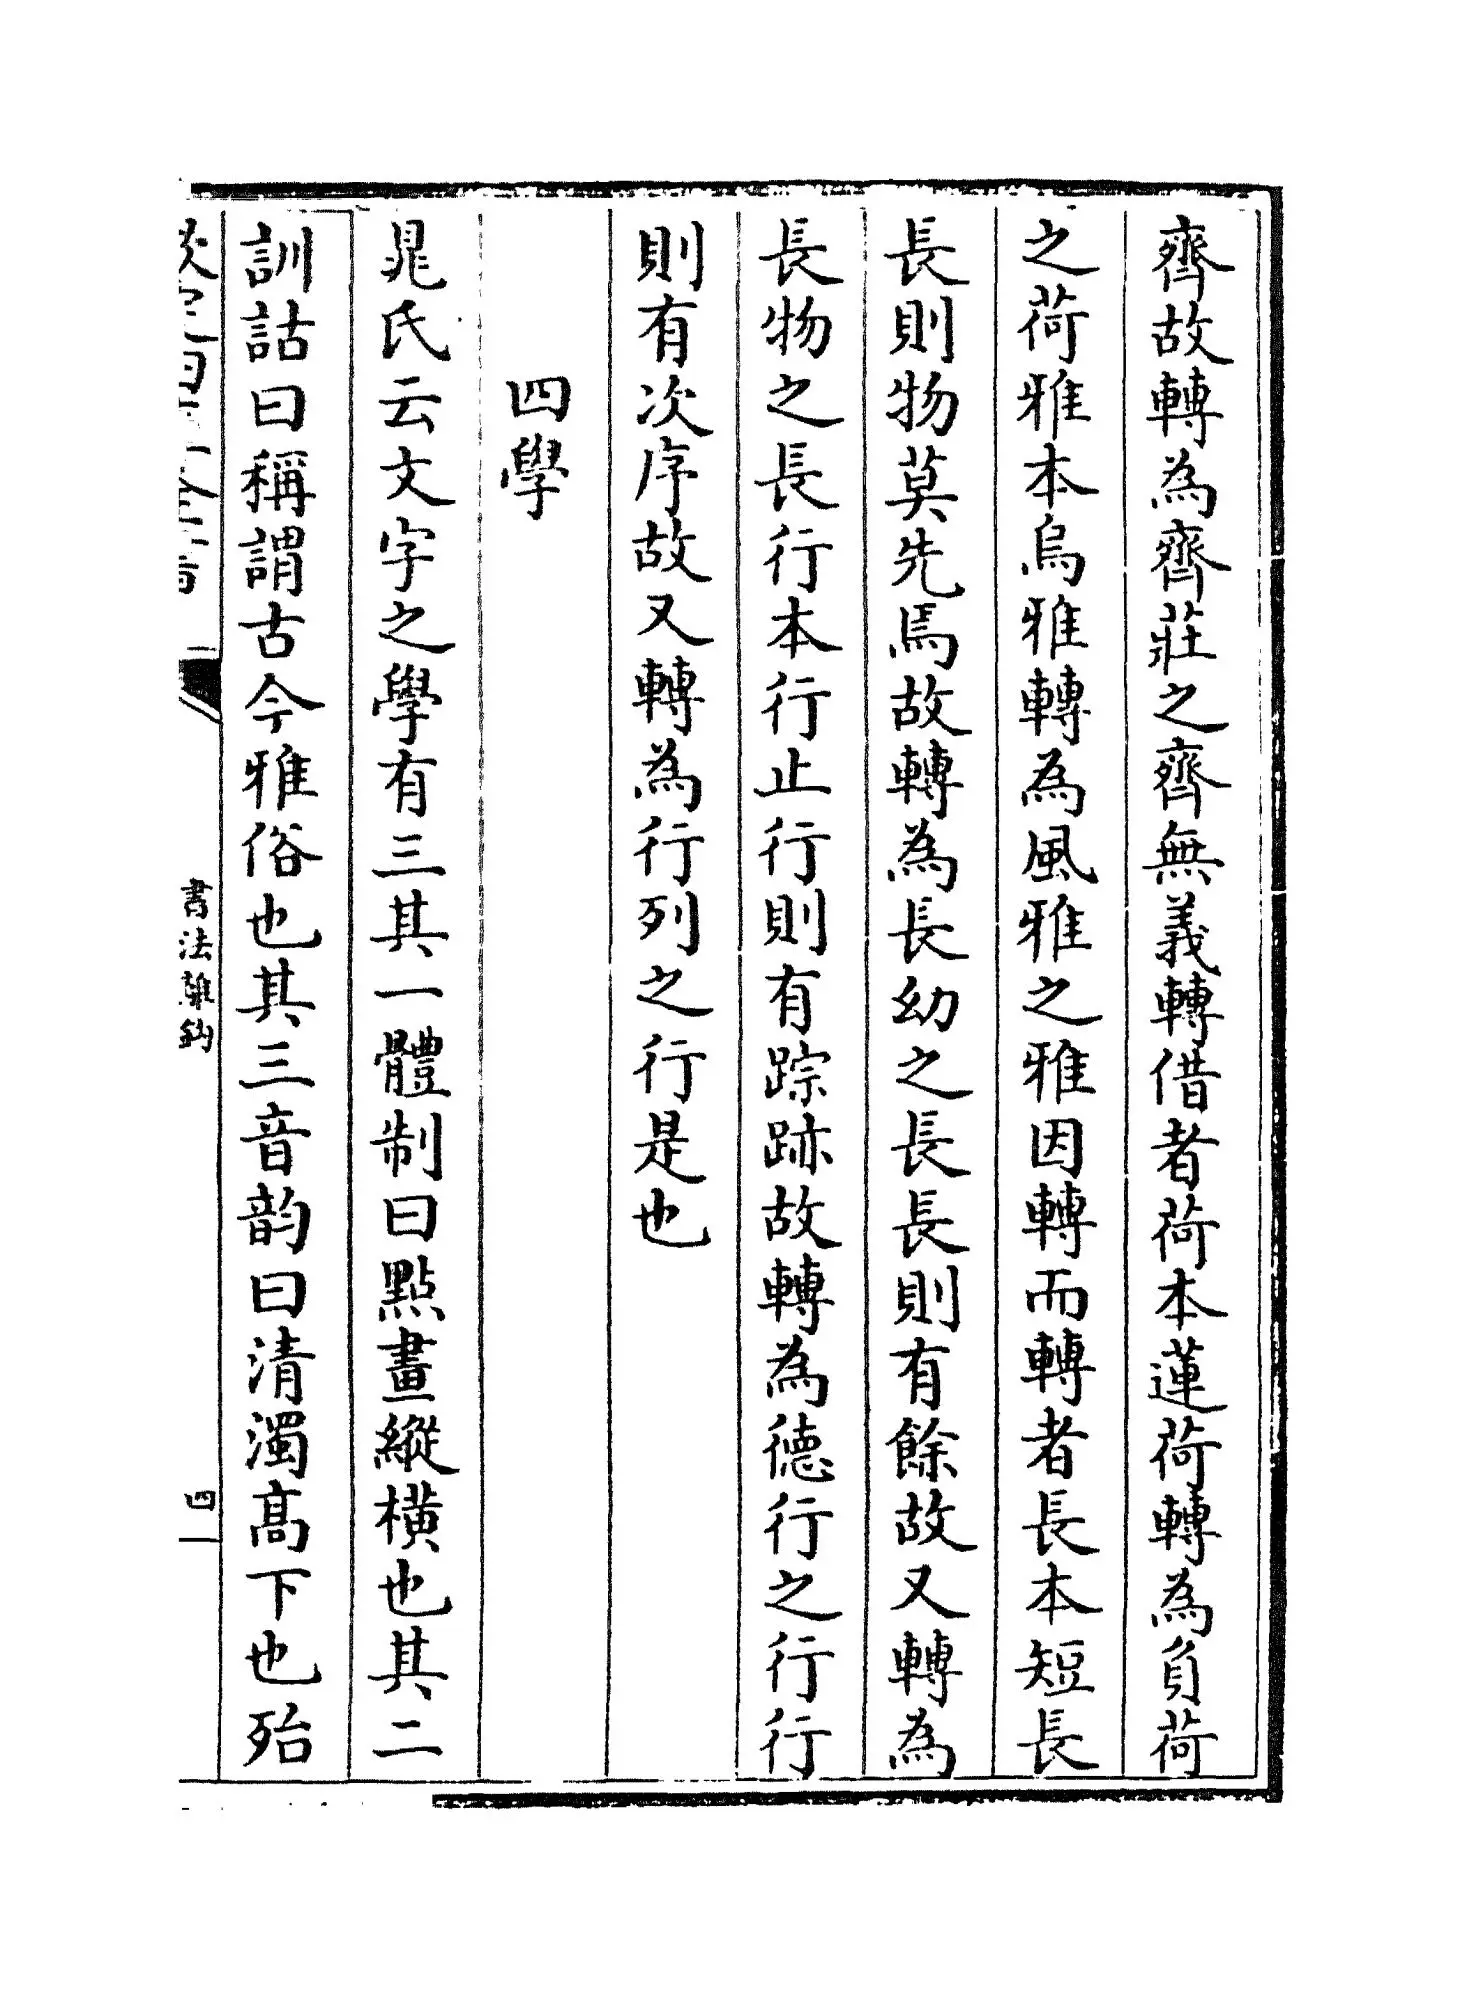 齊故轉為齊齊莊之齊無義轉借者荷本蓮荷轉為負荷
之荷雅本烏雅轉為風雅之雅因轉而轉者長本短長
長則物莫先焉故轉為長幼之長長則有餘故又轉為
長物之長行本行止行則有踪跡故轉為德行之行行
則有次序故又轉為行列之行是也
四學
晁氏云文字之學有三其一體制曰點畫縱橫也其二
訓詁曰稱謂古今雅俗也其三音韵曰清濁高下也殆
欽定四庫全書
書法離鈎
四